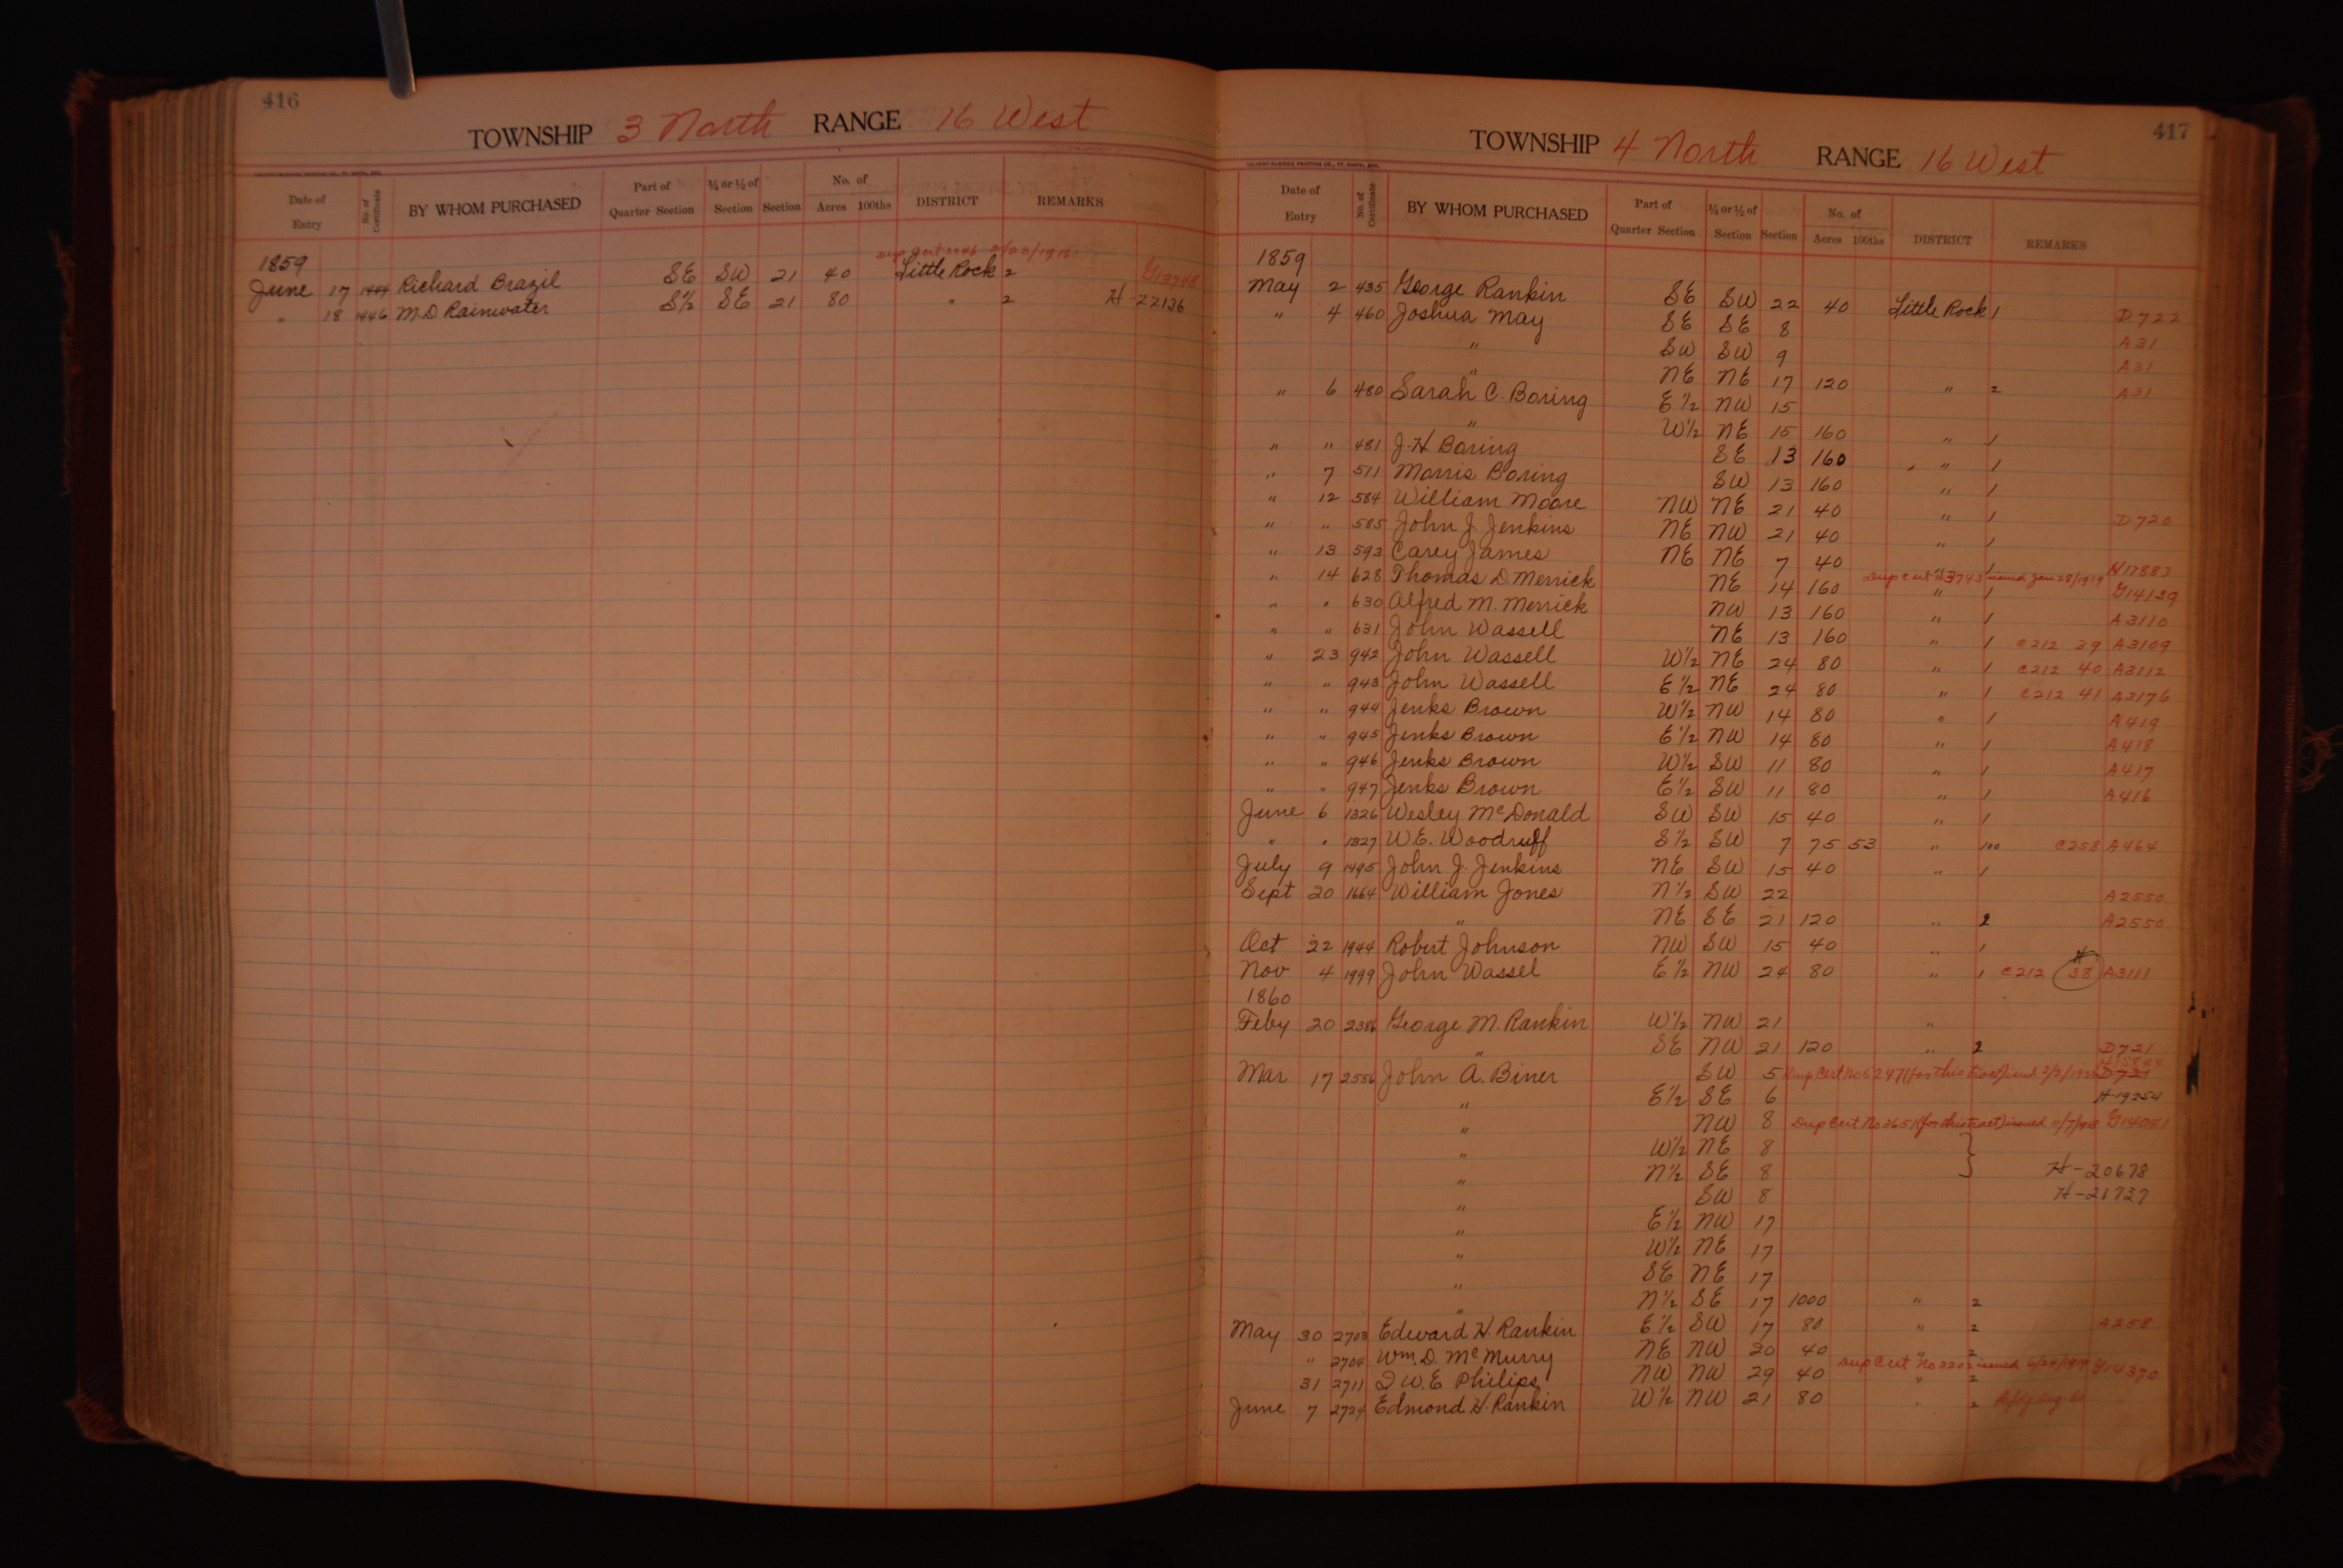 416
TOWNSHIP 3 North RANGE 16 West
Date of Entry No. of Certificate BY WHOM PURCHASED Part of Quarter Section ¼ or ½ of Section Section No. of Acres 100ths DISTRICT REMARKS
1859
June 17 Richard Brazil SE SW 21 40 Little Rock 2 G13748
" 18 1446 M.D. Rainwater S½ SE 21 80 " 2 H-22136
417
TOWNSHIP 4 North RANGE 16 West
Date of Entry No. of Certificate BY WHOM PURCHASED Part of Quarter Section ¼ or ½ of Section Section No. of Acres 100ths DISTRICT REMARKS
1859
May 2 435 George Rankin SE SW 22 40 Little Rock 1 D722
" 4 460 Joshua May SE SE 8 A31
" SW SW 9 A31
" NE NE 17 120 " 2 A31
" 6 480 Sarah C. Boring E½ NW 15
" W½ NE 15 160 " 1
" " 481 J.H Boring SE 13 160 " 1
" 7 511 Morris Boring SW 13 160 " 1
" 12 584 William Moore NW NE 21 40 " 1 D720
" " 585 John J. Jenkins NE NW 21 40 " 1
" 13 593 Carey James NE NE 7 40 " 1 H17883
Dup Cert No 3743 issued Jan 28/1919
" 14 628 Thomas D. Merrick NE 14 160 " 1 G14139
" " 630 Alfred M. Merrick NW 13 160 " 1 A3110
" " 631 John Wassell NE 13 160 " 1 C212 39 A3109
" 23 942 John Wassell W½ NE 24 80 " 1 C212 40 A3112
" " 943 John Wassell E½ NE 24 80 " 1 C212 41 A3176
" " 944 Jenks Brown W½ NW 14 80 " 1 A419
" " 945 Jenks Brown E½ NW 14 80 " 1 A418
" " 946 Jenks Brown W½ SW 11 80 " 1 A417
" " 947 Jenks Brown E½ SW 11 80 " 1 A416
June 6 1326 Wesley McDonald SW SW 15 40 " 1
" " 1327 W.E. Woodruff S½ SW 7 75 53 " 100 C258 A464
July 9 1495 John J. Jenkins NE SW 15 40 " 1
Sept 20 1664 William Jones N½ SW 22 A2550
" NE SE 21 120 " 2 A2550
Oct 22 1944 Robert Johnson NW SW 15 40 " 1
Nov 4 1999 John Wassel E½ NW 24 80 " 1 C212 38 A3111
1860
Feby 20 2386 George M. Rankin W½ NW 21 "
" SE NW 21 120 " 2 D721
Mar 17 2556 John A. Biner SW 5 Dup Cert No 6247 (for this tract) issued D721
" E½ SE 6 H-19254
" NW 8 Dup Cert No 3651 (for this tract) issued G14041
" W½ NE 8
" N½ SE 8 H-20678
" SW 8 H-21727
" E½ NW 17
" W½ NE 17
" SE NE 17
" N½ SE 17 1000 " 2
May 30 2703 Edward H. Rankin E½ SW 17 80 " 2 A258
" 2704 Wm. D. McMurry NE NW 20 40 " 2
Dup Cert No 3202 issued
31 2711 W.E. Philips NW NW 29 40 " 2 G14370
June 7 2724 Edmond H. Rankin W½ NW 21 80 " 2